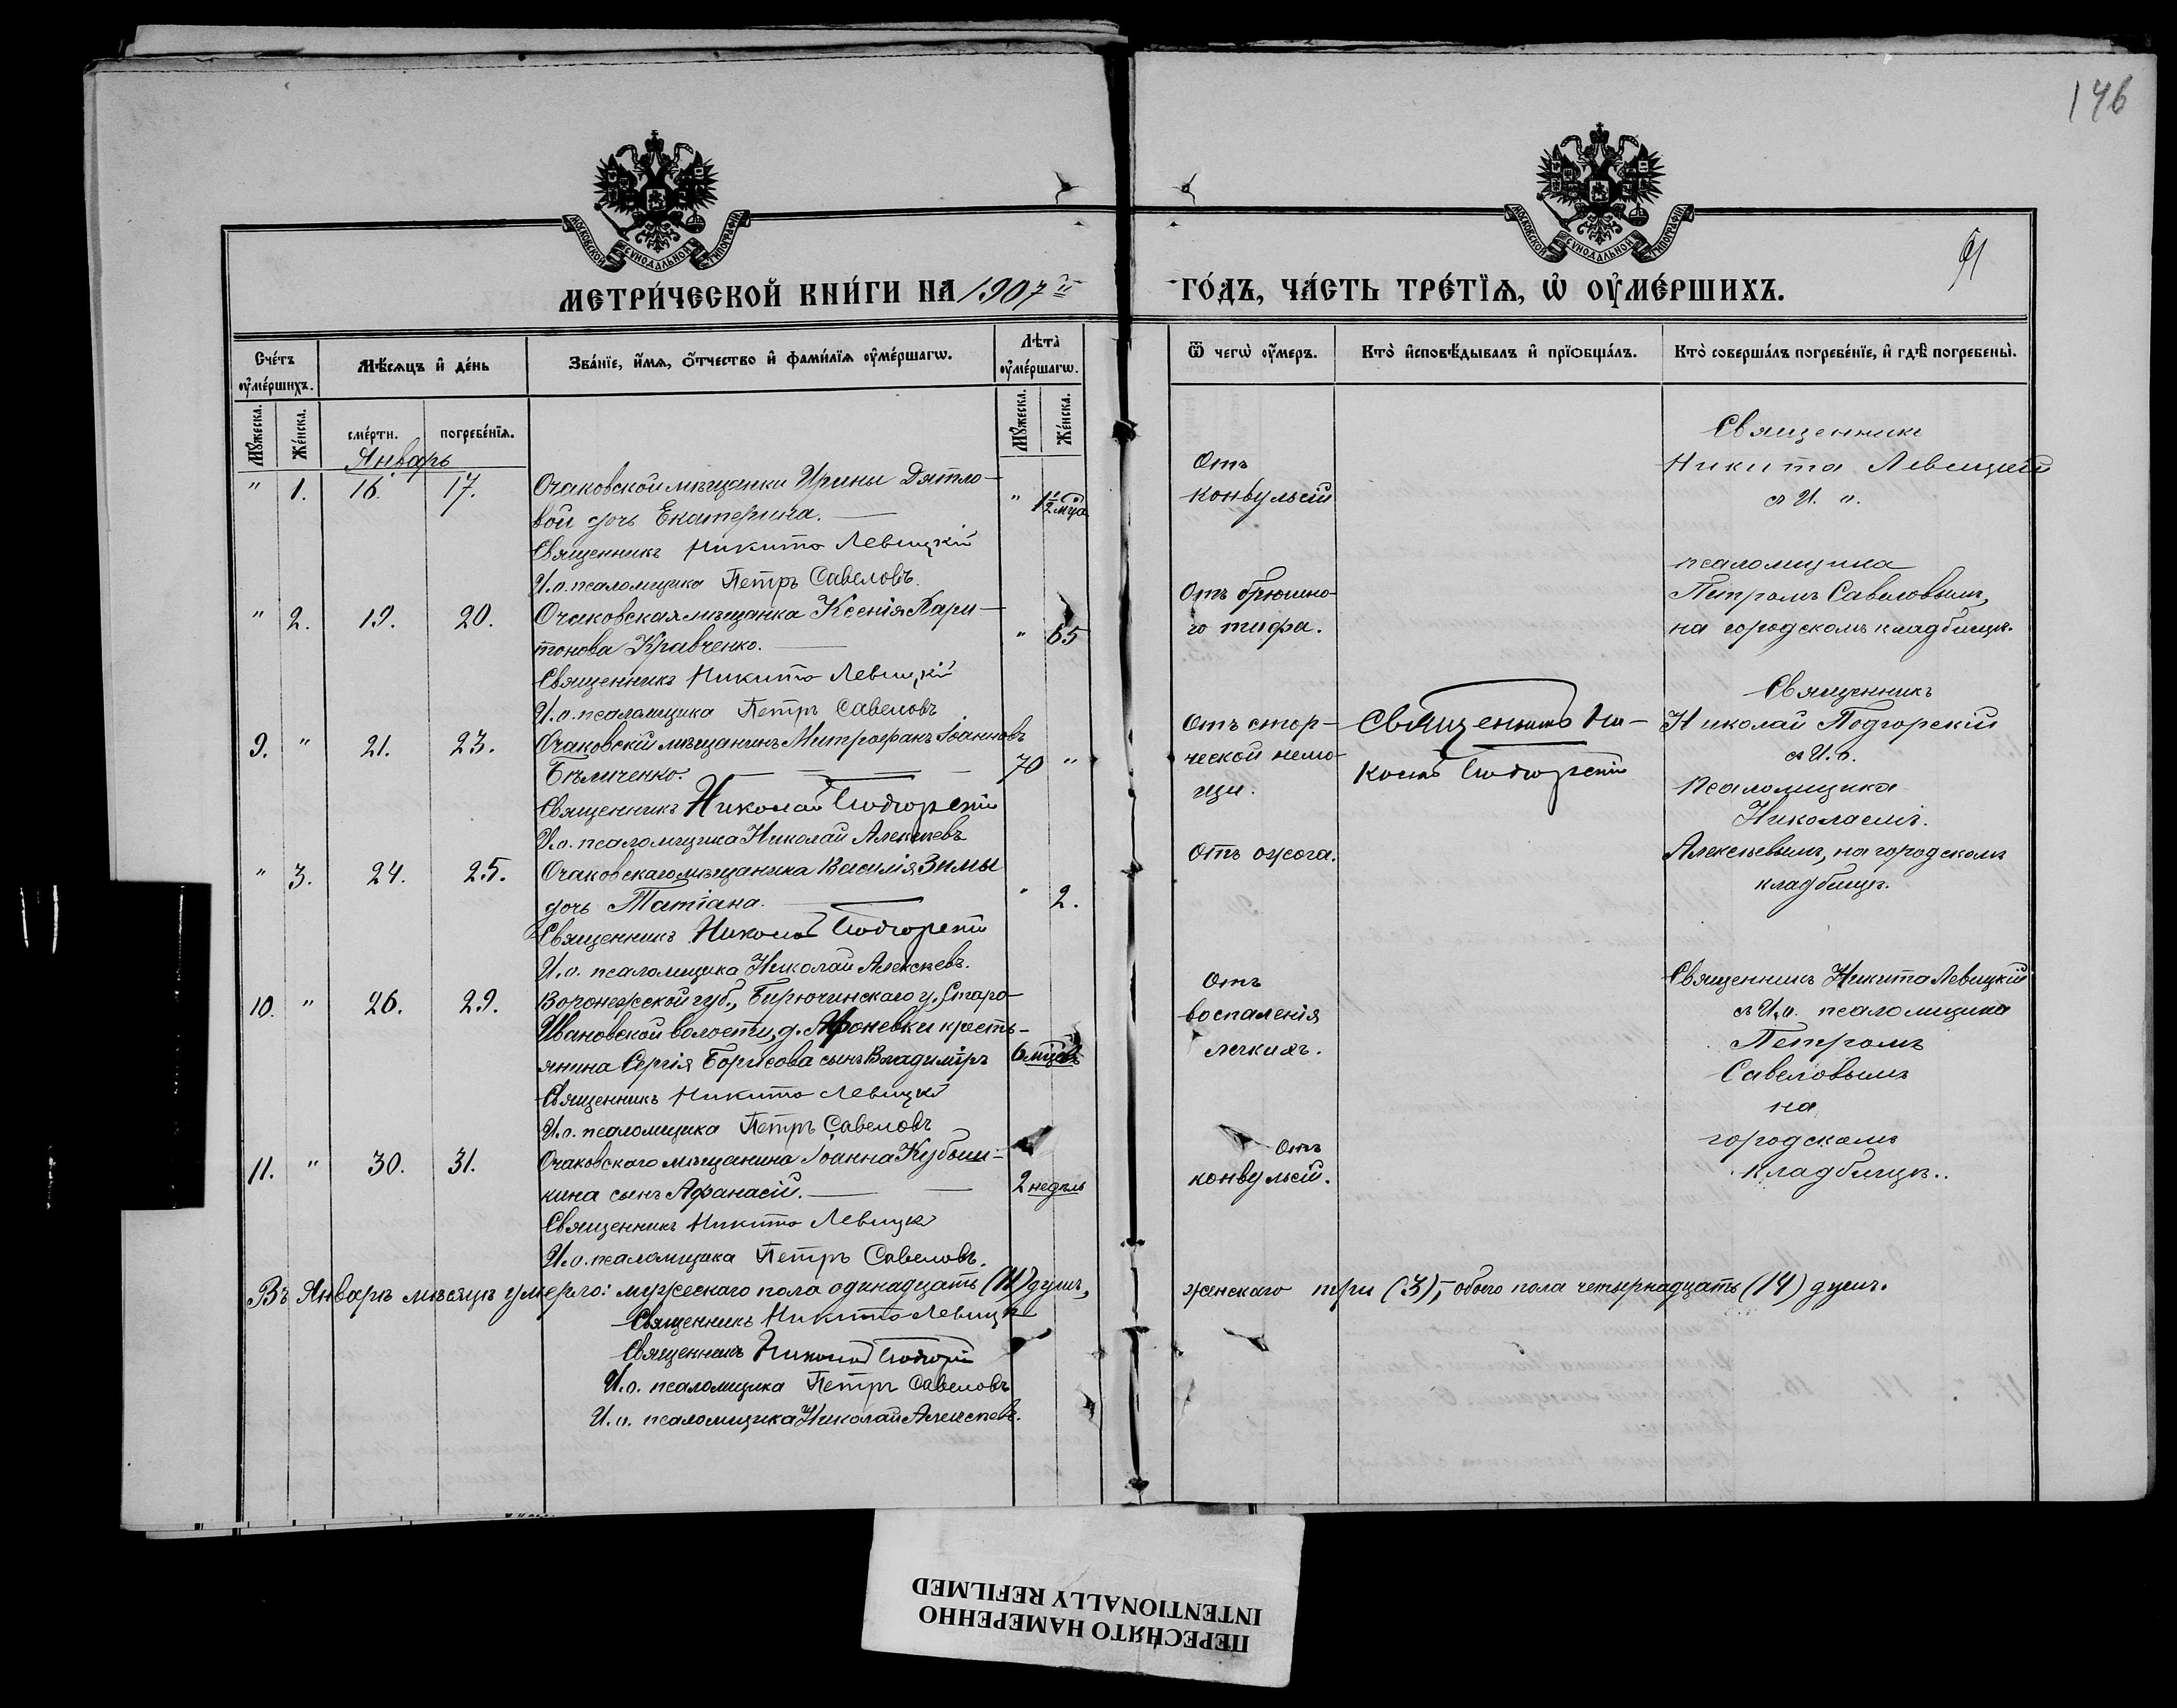 146
МОСКОВСКОЙ СѴНОДАЛЬНОЙ ТИПОГРАФІИ
МОСКОВСКОЙ СѴНОДАЛЬНОЙ ТИПОГРАФІИ
МЕТРИ́ЧЕСКОЙ КНИ́ГИ НА 1907й ГО́ДЪ, ЧА́СТЬ ТРЕ́ТЇѦ, Ѡ҆ ОУ҆МЕ́РШИХЪ.
Сче́тъ оу҆ме́ршихъ.
Мѣ́сяцъ и҆ де́нь
Зва́нїе, и҆́мѧ, ѻ҆́тчество и҆ фами́лїѧ оу҆ме́ршагѡ.
Лѣ́та̀ оу҆ме́ршагѡ.
Ѿ чегѡ̀ оу҆́меръ.
Кто̀ и҆сповѣ́дывалъ и҆ прїѻбща́лъ.
Кто̀ соверша́лъ погребе́нїе, и҆ гдѣ̀ погребены̀.
Мꙋ́жеска.
Же́нска.
сме́рти.
погребе́нїѧ.
Мꙋ́жеска.
Же́нска.
Январь
" 1. 16. 17. Очаковской мѣщанки Ирины Дятло-
вой дочь Екатерина. " 1½ мца
Священникъ Никита Левицкій
И.о. псаломщика Петръ Савеловъ.
Отъ
конвульсій
Священникъ
Никита Левицкій
съ И. о.
псаломщика
Петромъ Савеловымъ,
на городскомъ кладбищѣ.
" 2. 19. 20. Очаковская мѣщанка Ксенія Хари-
тонова Кравченко. " 65
Священникъ Никита Левицкій
И.о. псаломщика Петръ Савеловъ
Отъ брюшно-
го тифа.
9. " 21. 23. Очаковскій мѣщанинъ Митрофанъ Іоанновъ
Бѣличенко. 70 "
Священникъ Николай Подгорскій
И.о. псаломщика Николай Алексѣевъ
Отъ стар-
ческой немо-
щи.
Священникъ Ни-
колай Подгорскій
Священникъ
Николай Подгорскій
съ И.о.
псаломщика
Николаемъ
Алексѣевымъ, на городскомъ
кладбищѣ.
" 3. 24. 25. Очаковскаго мѣщанина Василія Зимы
дочь Татіана. " 2.
Священникъ Николай Подгорскій
И.о. псаломщика Николай Алексѣевъ.
Отъ ожога.
10. " 26. 29. Воронежской губ., Бирючинскаго у., Старо-
Ивановской волости, д. Афоневки кресть-
янина Сергія Борисова сынъ Владиміръ 6 мцевъ
Священникъ Никита Левицкій
И.о. псаломщика Петръ Савеловъ
Отъ
воспаленія
легкихъ.
Священникъ Никита Левицкій
съ И.о. псаломщика
Петромъ
Савеловымъ
на
городскомъ
кладбищѣ.
11. " 30. 31. Очаковскаго мѣщанина Іоанна Кубыш-
кина сынъ Афанасій. 2 недѣль
Священникъ Никита Левицкій
И.о. псаломщика Петръ Савеловъ.
Отъ
конвульсій.
Въ Январѣ мѣсяцѣ умерло: мужескаго пола одинадцать (11) душъ, женскаго три (3), обоего пола четырнадцать (14) душъ.
Священникъ Никита Левицкій
Священникъ Николай Подгорскій
И.о. псаломщика Петръ Савеловъ
И.о. псаломщика Николай Алексѣевъ.
ПЕРЕСНЯТО НАМЕРЕННО
INTENTIONALLY REFILMED